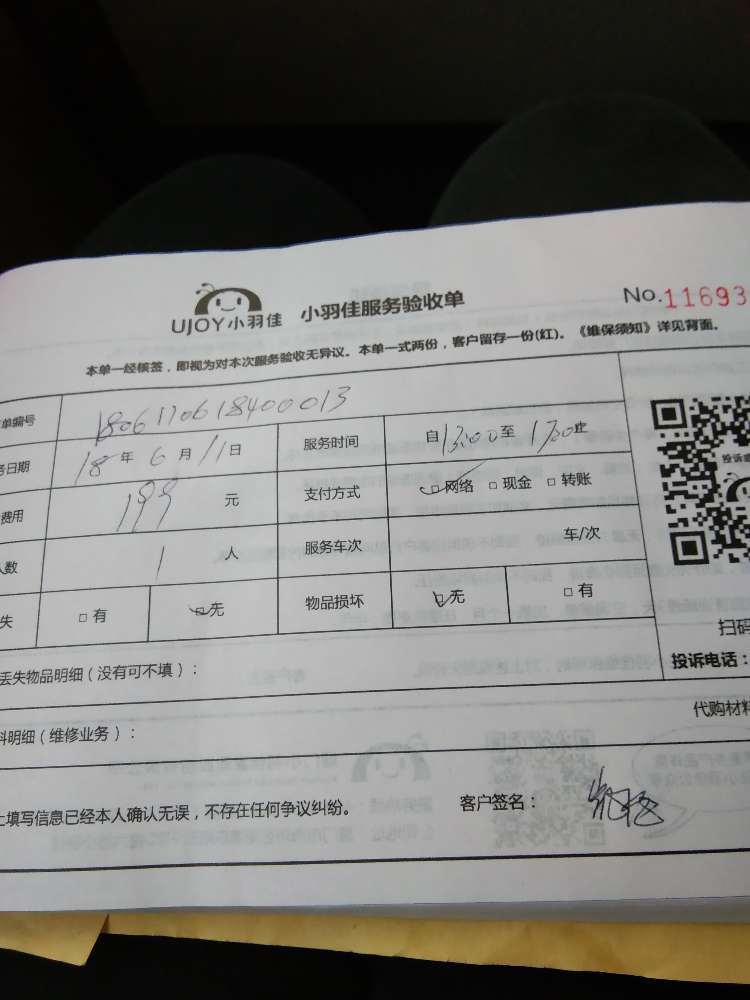 UJOY小羽佳 小羽佳服务验收单 No.11693
本单一经核签，即视为对本次服务验收无异议。本单一式两份，客户留存一份(红)。《维保须知》详见背面。
单编号 1806170618400013
务日期 18年6月11日 服务时间 自13:00至17:30止
费用 199 元 支付方式 □网络 □现金 □转账
人数 1 人 服务车次 车/次
失 □有 □无 物品损坏 □无 □有
投诉
扫码
丢失物品明细（没有可不填）： 投诉电话：
料明细（维修业务）： 代购材料
上填写信息已经本人确认无误，不存在任何争议纠纷。 客户签名：